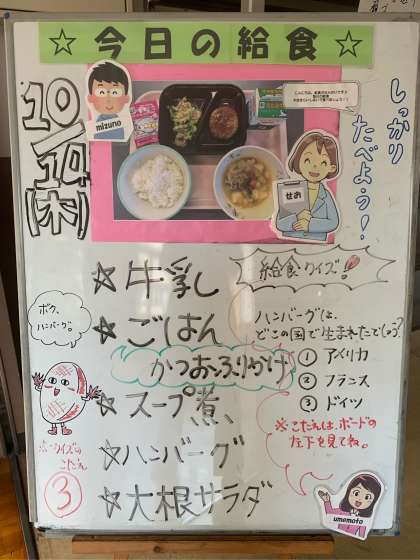 ☆今日の給食☆
10/14(木)
しっかり
たべよう!
mizuno
せお
☆牛乳
☆ごはん
かつおふりかけ
☆スープ煮
☆ハンバーグ
☆大根サラダ
給食クイズ!
ハンバーグは、
どこの国で生まれたでしょう?
① アメリカ
② フランス
③ ドイツ
※こたえは、ボードの
左下を見てね。
ボク、
ハンバーグ。
※クイズの
こたえ
③
umemoto